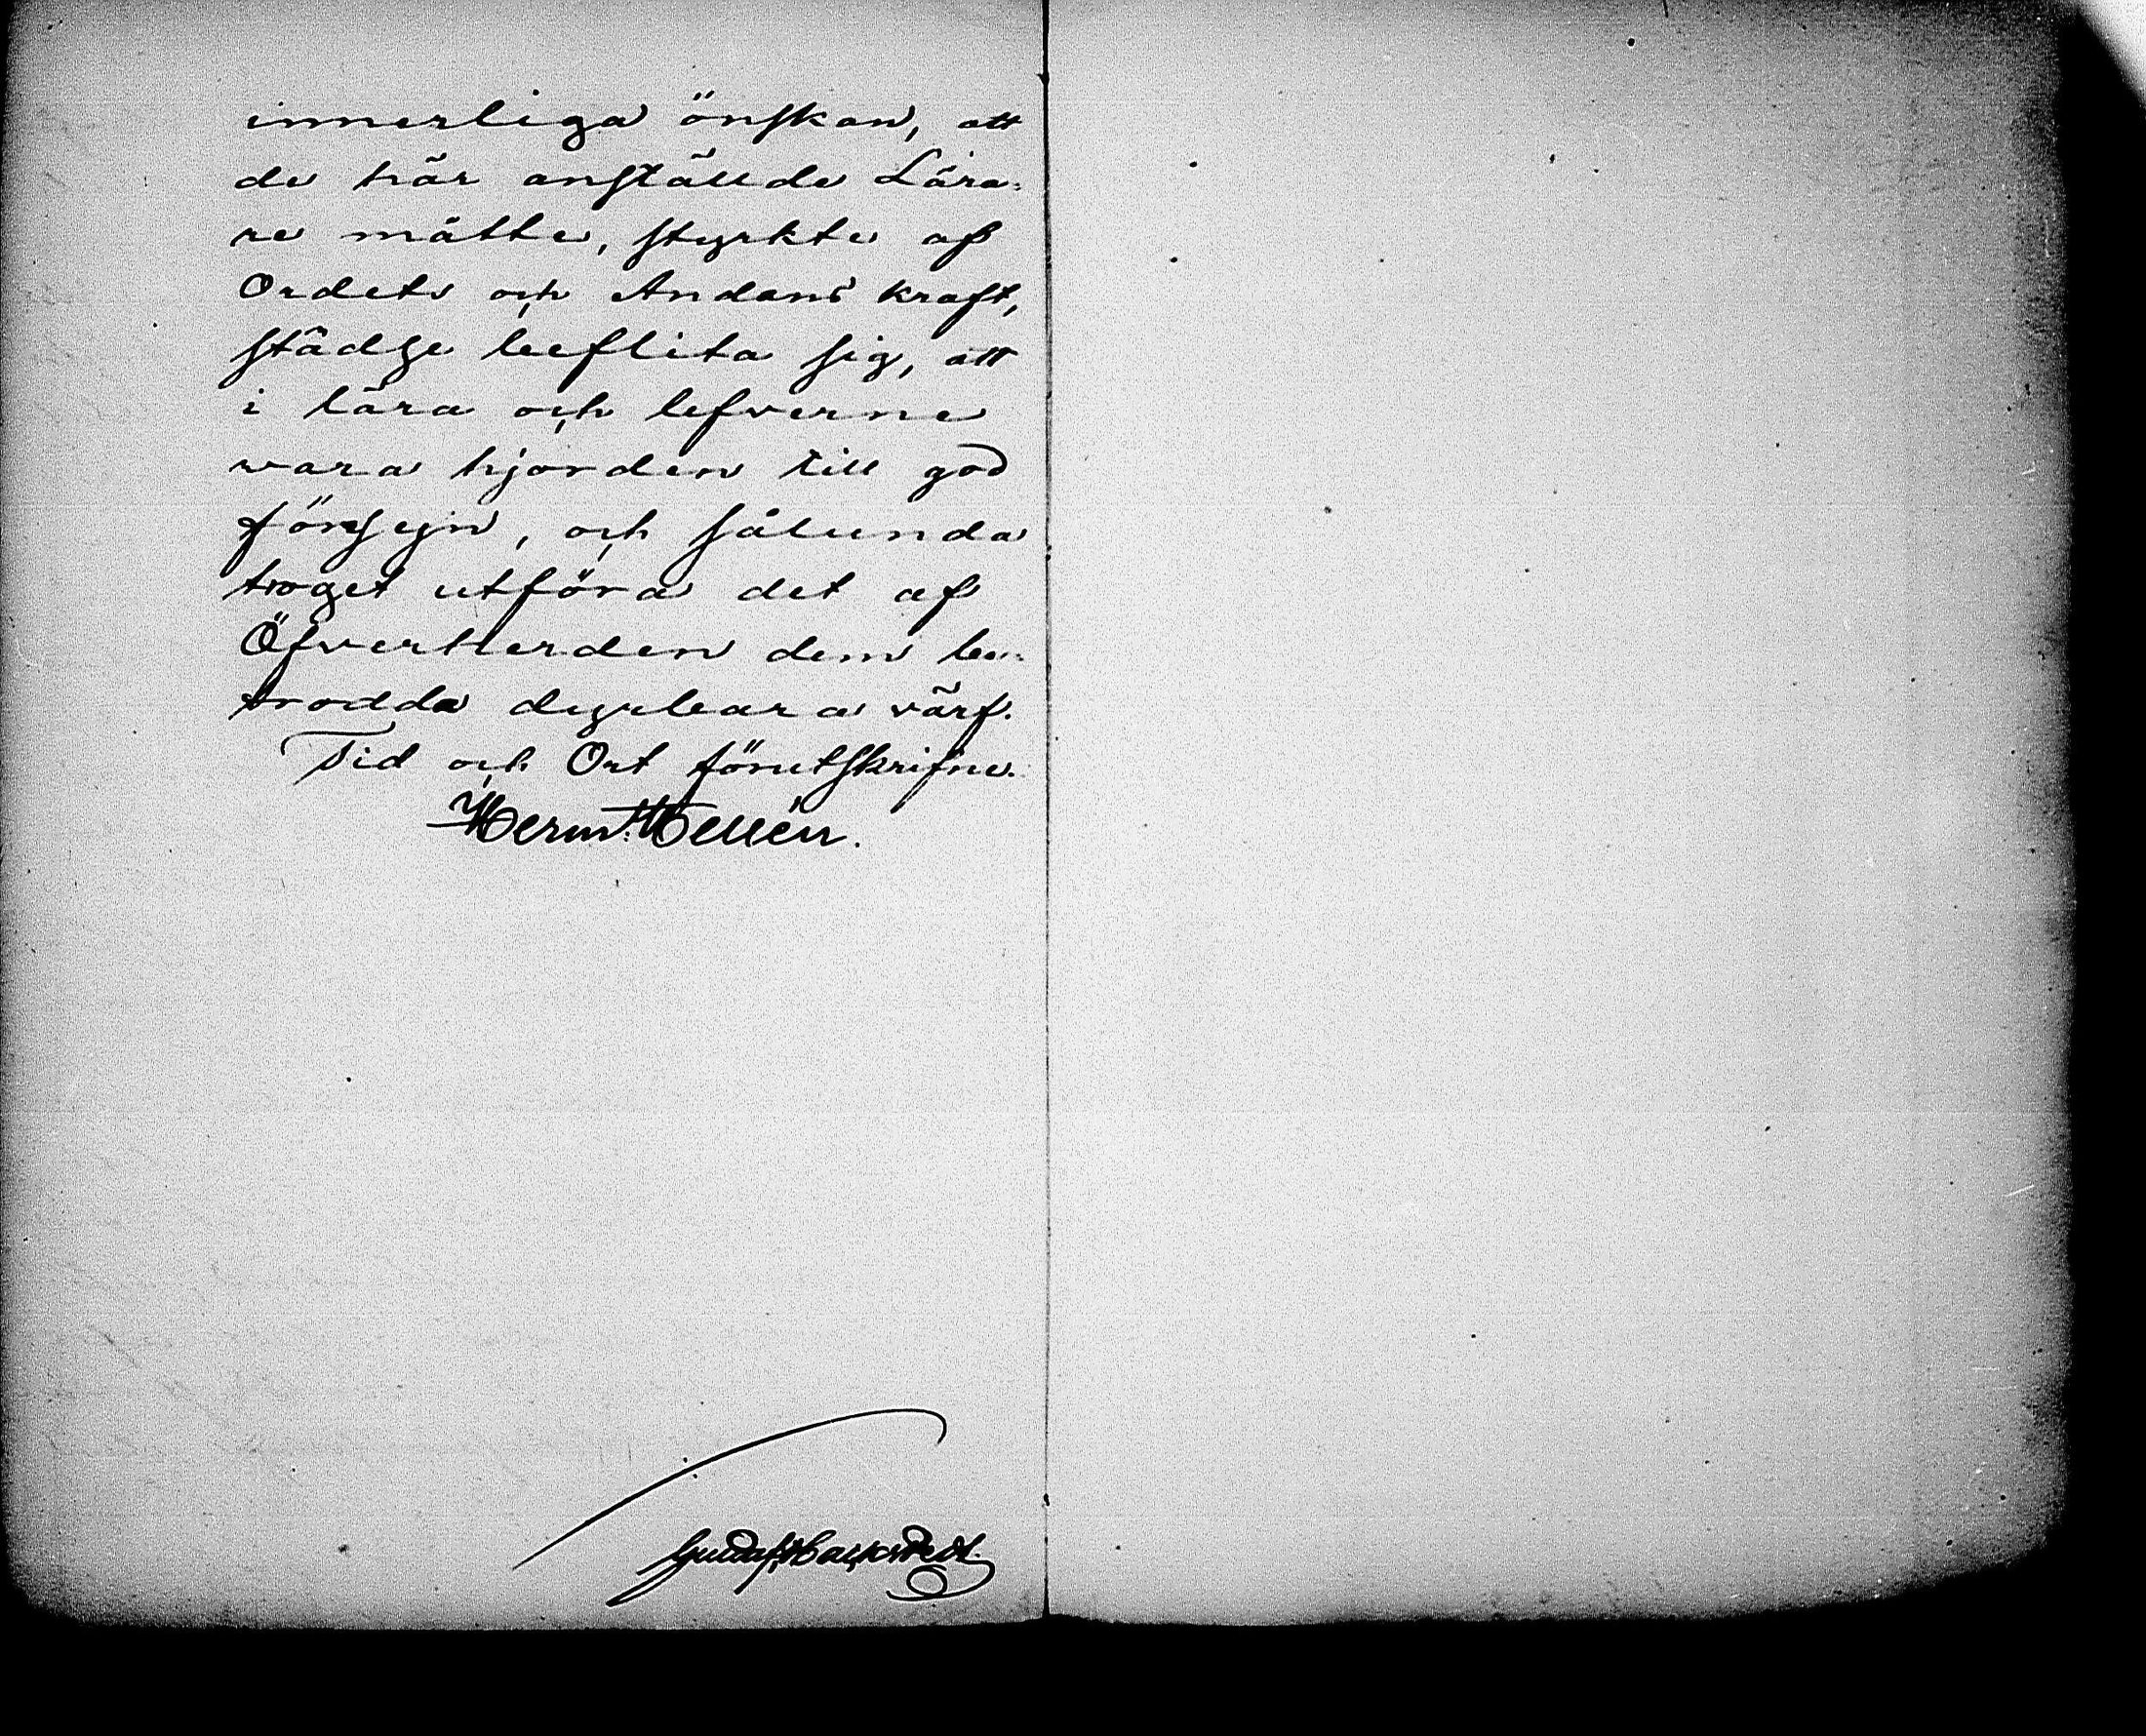 innerliga önskan, att
de här anställde Lära-
re måtte, styrkte af
Ordets och Andans kraft,
städse beflita sig, att
i lära och lefverne
wara hjorden till god
försyn, och sålunda
troget utföra det af
Öfverherden dem be-
trodda dyrbara värf.
Tid och Ort förutskrifne.
Herm. Hellén.
Gustaf